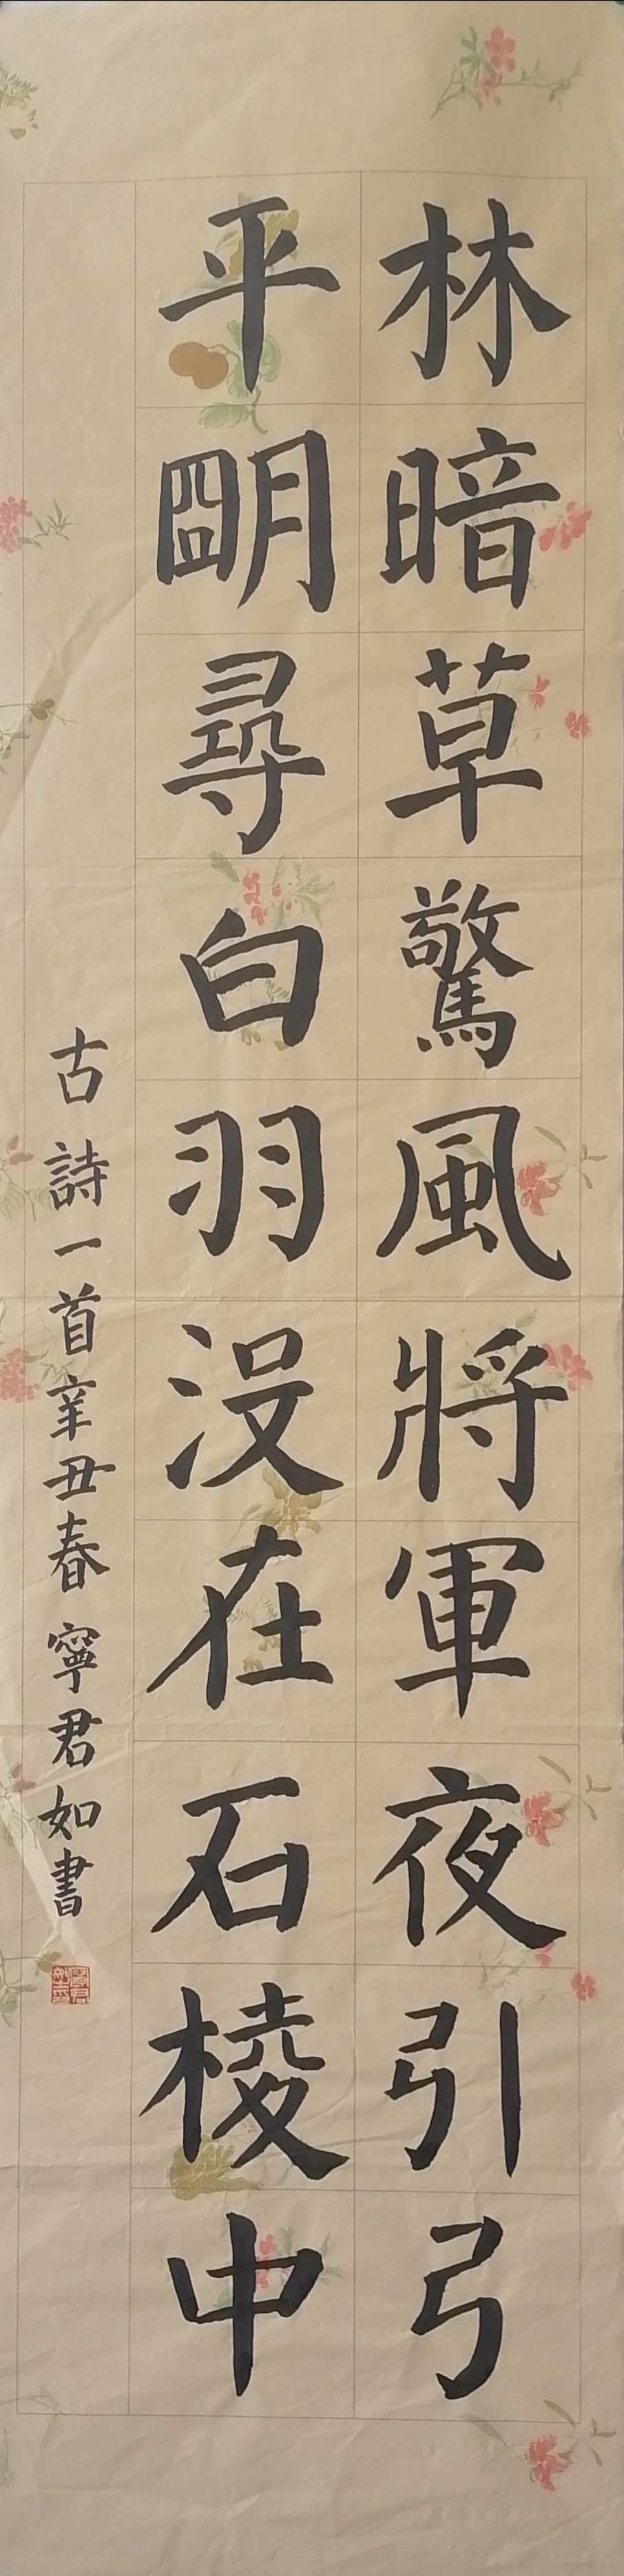 林暗草驚風將軍夜引弓
平朙尋白羽沒在石棱中
古詩一首辛丑春寧君如書